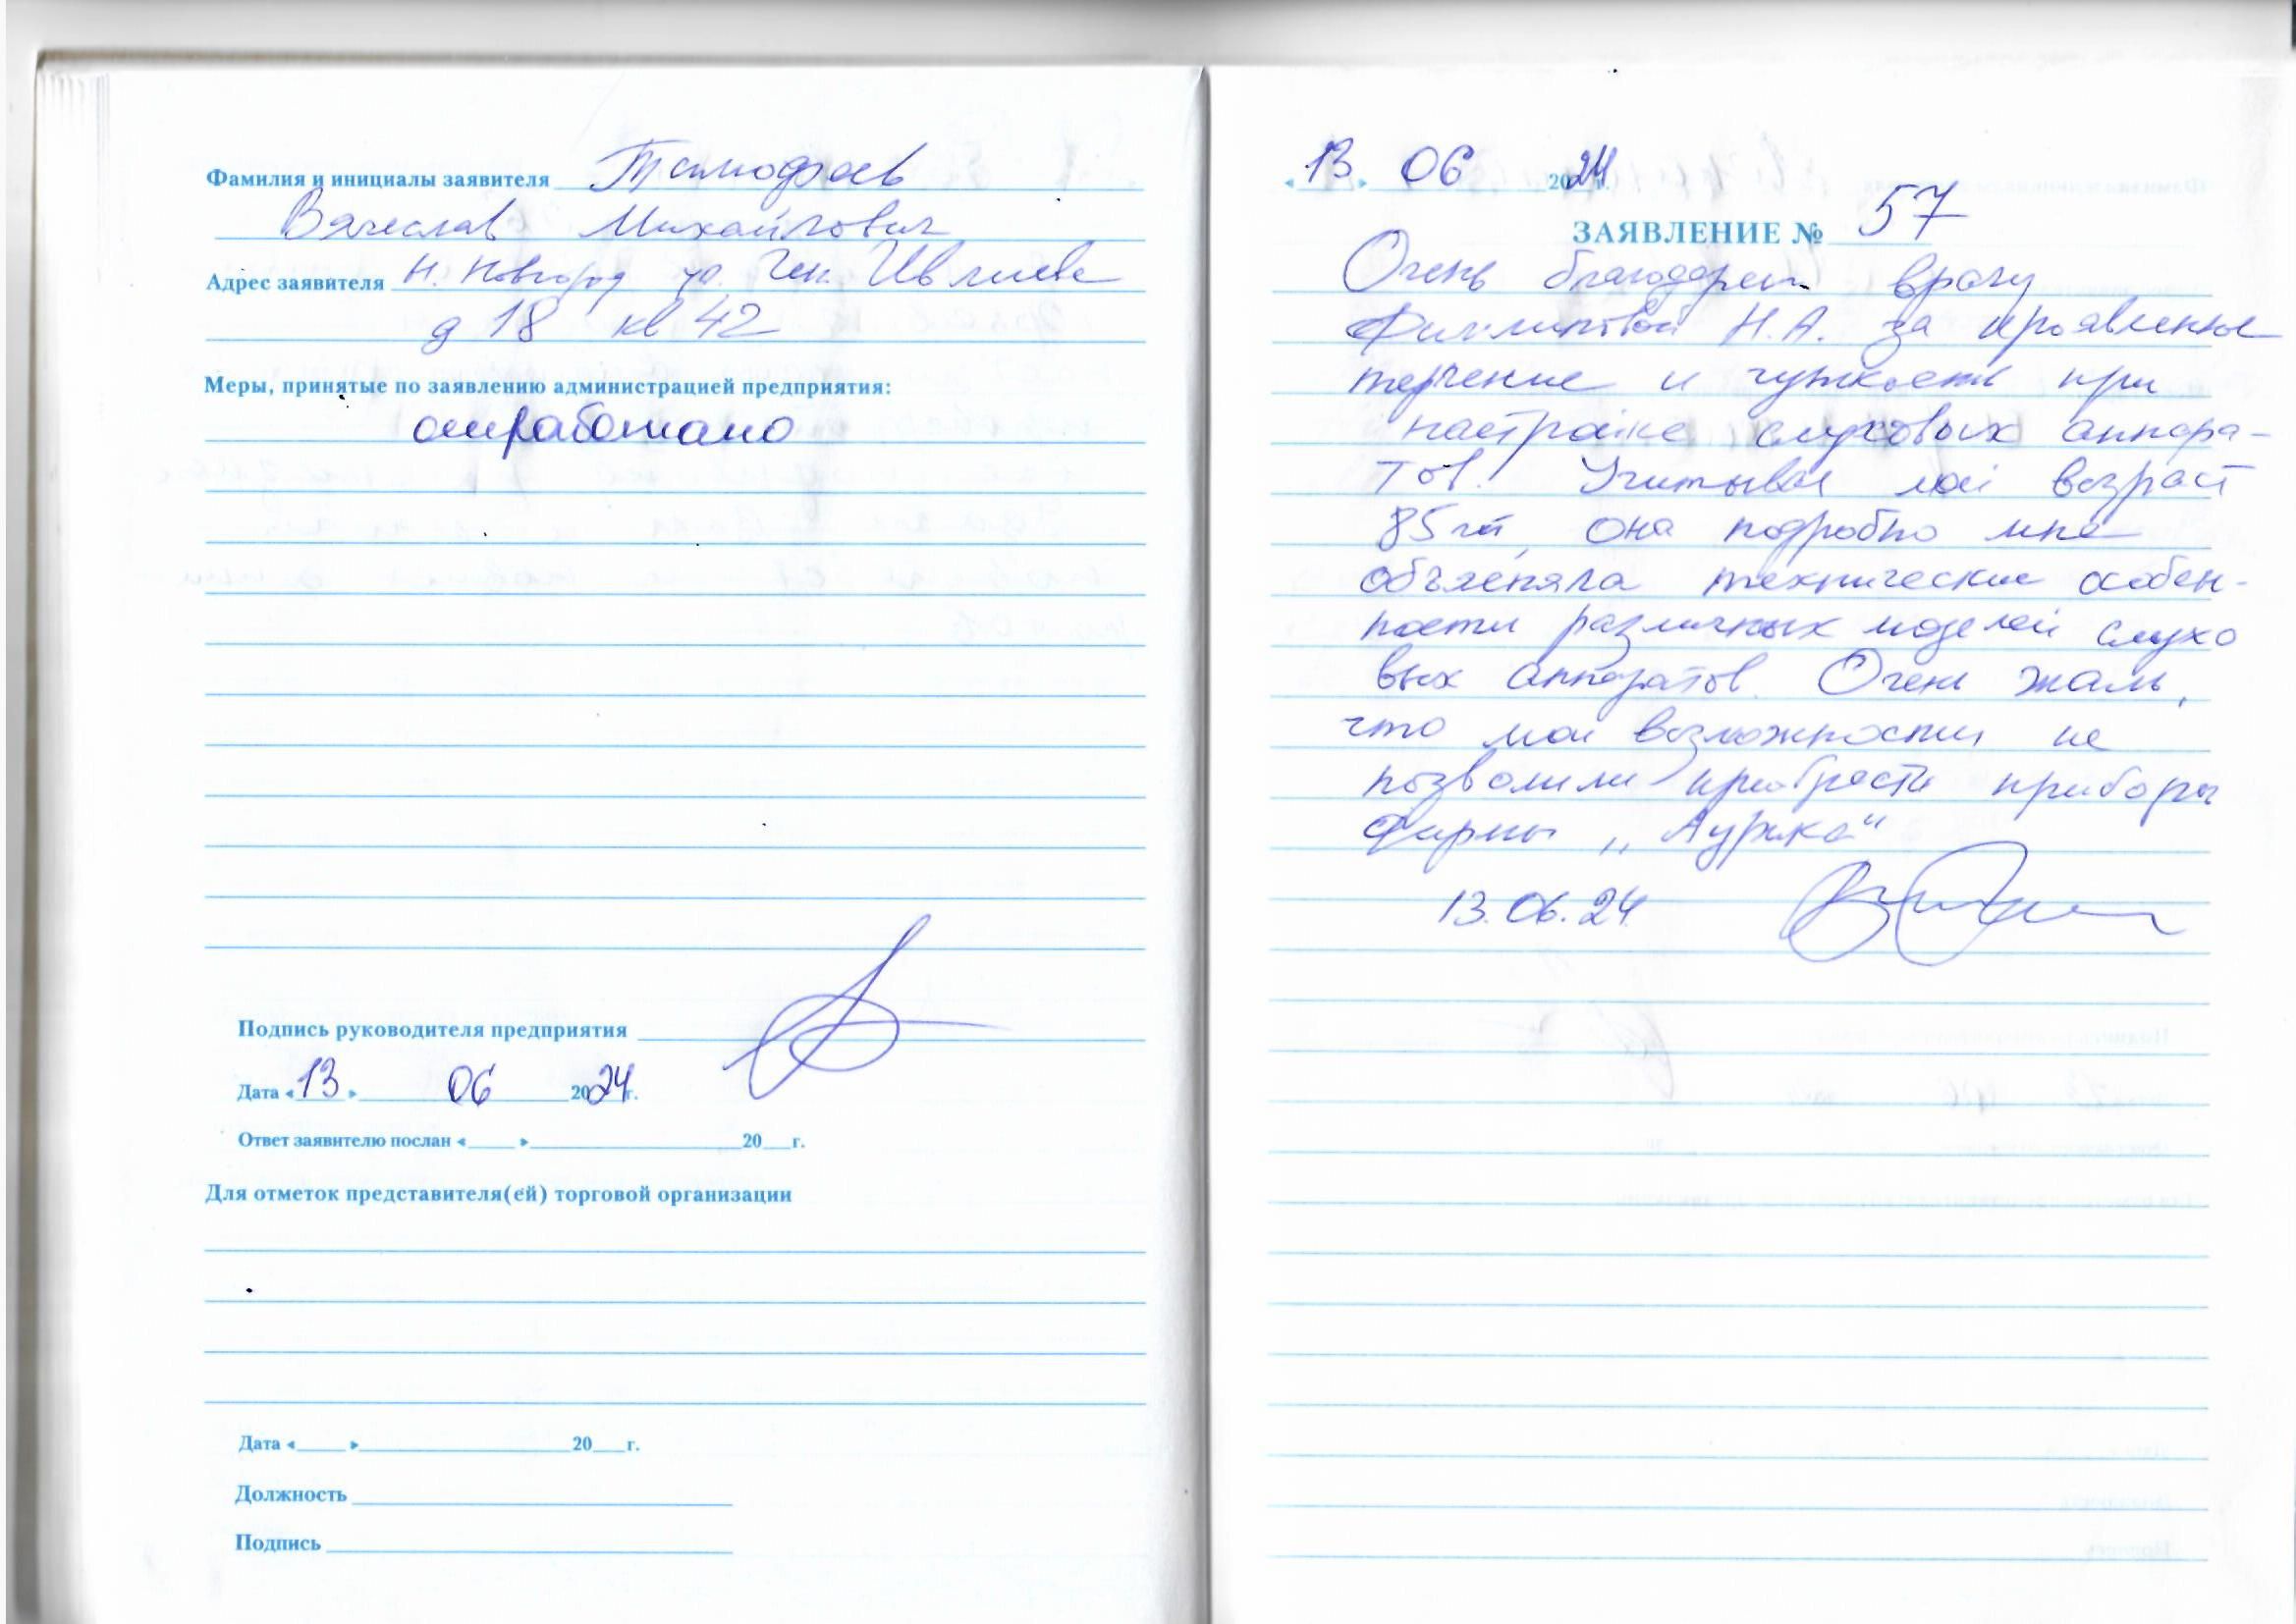 Фамилия и инициалы заявителя Тимофеев
Вячеслав Михайлович
Адрес заявителя Н. Новгород ул. Ген. Ивлиева
д 18 кв 42
Меры, принятые по заявлению администрацией предприятия:
отработано
Подпись руководителя предприятия
Дата «13» 06 2024 г.
Ответ заявителю послан « » 20 г.
Для отметок представителя(ей) торговой организации
Дата « » 20 г.
Должность
Подпись
«13» 06 2024 г.
ЗАЯВЛЕНИЕ № 57
Очень благодарен врачу
Филипповой Н.А. за проявленные
терпение и чуткость при
настройке слуховых аппара-
тов. Учитывая мой возраст
85 лет, она подробно мне
объясняла технические особен-
ности различных моделей слухо
вых аппаратов. Очень жаль,
что мои возможности не
позволили приобрести приборы
фирмы „Аурика"
13.06.24